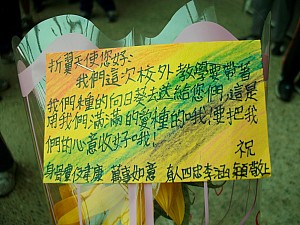 折翼天使您好:
我們這次校外教學要帶著
我們種的向日葵去送給您們,這是
用我們滿滿的愛種的哦!要把我
們的心意收好哦!
祝
身體健康 萬事如意 育人四忠李涵穎敬上